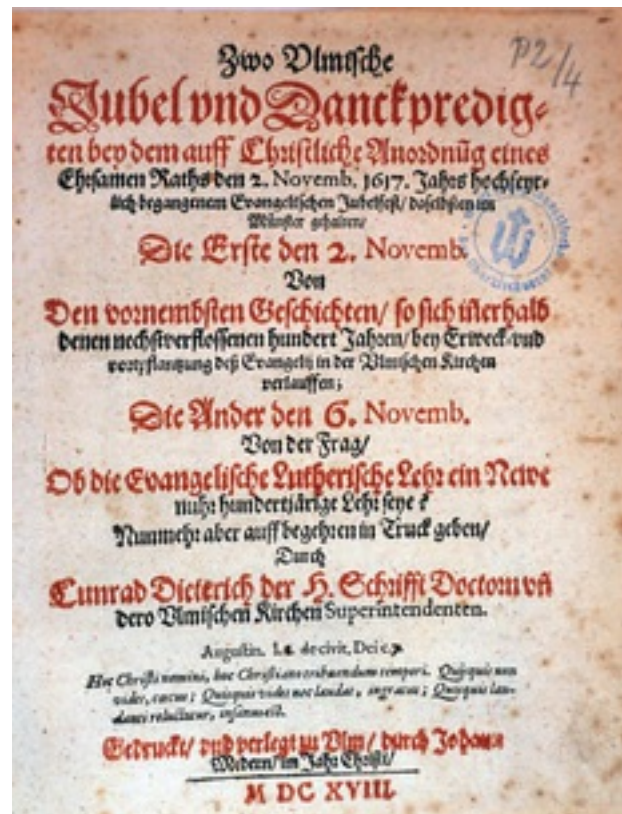 P2/4
Zwo Vlmische
Jubel vnd Danckpredig-
ten bey dem auff Christliche Anordnũg eines
Ehrsamen Raths den 2. Novemb. 1617. Jahrs hochfeyr-
lich begangenem Evangelischen Jubelfest/ daselbsten im
Münster gehalten/
Die Erste den 2. Novemb.
Von
Den vornembsten Geschichten/ so sich iñerhalb
denen nechstverflossenen hundert Jahren/ bey Erweck-vnd
vortpflantzung deß Evangelij in der Vlmischen Kirchen
verlauffen;
Die Ander den 6. Novemb.
Von der Frag/
Ob die Evangelische Lutherische Lehr ein Newe
nuhr hundertjärige Lehr seye?
Nunmehr aber auff begehren in Truck geben/
Durch
Cunrad Dieterich der H. Schrifft Doctorn vñ
dero Vlmischen Kirchen Superintendenten.
Augustin. l. de civit. Dei c.
Hoc Christi nomini, hoc Christiano tribuendum tempori. Quisquis non
videt, cæcus; Quisquis videt nec laudat, ingratus; Quisquis lau-
danti reluctatur, insanus est.
Gedruckt/ vnd verlegt zu Vlm/ durch Johann
Medern/ im Jahr Christi/
M DC XVIII.